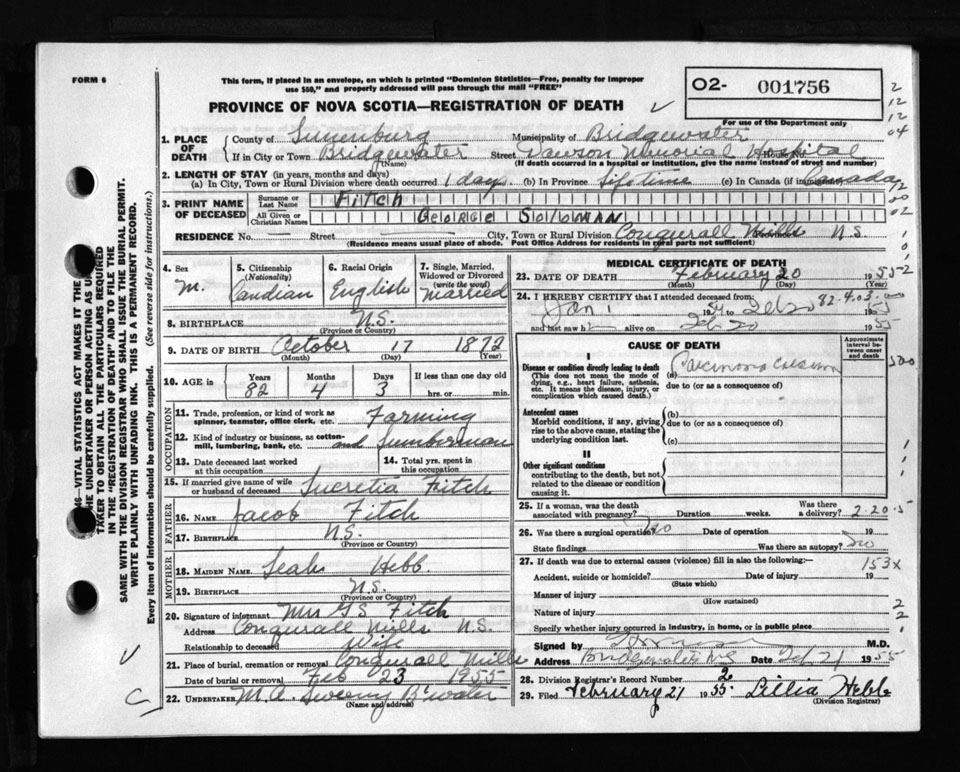 FORM 6
This form, if placed in an envelope, on which is printed "Dominion Statistics—Free, penalty for improper
use $50," and properly addressed will pass through the mail "FREE"
O2- 001756
For use of the Department only
PROVINCE OF NOVA SCOTIA—REGISTRATION OF DEATH
2
12
12
04
1. PLACE OF DEATH County of Lunenburg Municipality of Bridgewater
If in City or Town Bridgewater Street Dawson Memorial Hospital
(Name) (If death occurred in a hospital or institution, give the name instead of street and number)
2. LENGTH OF STAY (in years, months and days)
(a) In City, Town or Rural Division where death occurred 1 day. (b) In Province Lifetime (c) In Canada (if immigrant) Canada
3. PRINT NAME OF DECEASED Surname or Last Name Fitch
All Given or Christian Names GEORGE SOLOMAN
RESIDENCE No. — Street — City, Town or Rural Division Conquerall Mills N.S.
(Residence means usual place of abode. Post Office Address for residents in rural parts not sufficient)
4. Sex M.
5. Citizenship (Nationality) Candian
6. Racial Origin English
7. Single, Married, Widowed or Divorced (write the word) Married
8. BIRTHPLACE N.S.
(Province or Country)
9. DATE OF BIRTH October 17 1872
(Month) (Day) (Year)
10. AGE in Years 82 Months 4 Days 3 If less than one day old hrs. or min.
OCCUPATION
11. Trade, profession, or kind of work as spinner, teamster, office clerk, etc. Farming
12. Kind of industry or business, as cotton-mill, lumbering, bank, etc. and Lumberman
13. Date deceased last worked at this occupation
14. Total yrs. spent in this occupation
15. If married give name of wife or husband of deceased Lucretia Fitch
FATHER
16. NAME Jacob Fitch
17. BIRTHPLACE N.S.
(Province or Country)
MOTHER
18. MAIDEN NAME Leah Hebb.
19. BIRTHPLACE N.S.
(Province or Country)
20. Signature of informant Mrs G S Fitch
Address Conqurall Mills N.S.
Relationship to deceased Wife
21. Place of burial, cremation or removal Conqurall Mills
Date of burial or removal Feb 23 1955
22. UNDERTAKER M.A. Sweeny B'water
(Name and address)
MEDICAL CERTIFICATE OF DEATH
23. DATE OF DEATH February 20 1955
(Month) (Day) (Year)
24. I HEREBY CERTIFY that I attended deceased from:
Jan 1 to Feb 20 1955
82-4-03
and last saw h alive on Feb 20 1955
CAUSE OF DEATH
Approximate interval between onset and death
I
Disease or condition directly leading to death
(This does not mean the mode of dying, e.g., heart failure, asthenia, etc. It means the disease, injury, or complication which caused death.)
(a) Carcinoma
due to (or as a consequence of)
Antecedent causes
Morbid conditions, if any, giving rise to the above cause, stating the underlying condition last.
(b)
due to (or as a consequence of)
(c)
II
Other significant conditions
contributing to the death, but not related to the disease or condition causing it.
25. If a woman, was the death associated with pregnancy? Duration weeks. Was there a delivery?
2-20-5
26. Was there a surgical operation? no Date of operation 19
State findings Was there an autopsy? no
27. If death was due to external causes (violence) fill in also the following:
153X
Accident, suicide or homicide? Date of injury 19
(State which)
Manner of injury
(How sustained)
Nature of injury
Specify whether injury occurred in industry, in home, or in public place
Signed by M.D.
Address Bridgewater N.S. Date Feb 21 1955
28. Division Registrar's Record Number 2
29. Filed February 21 1955. Lillia Hebb
(Division Registrar)
46—VITAL STATISTICS ACT MAKES IT THE
THE UNDERTAKER OR PERSON ACTING AS UNDER
TAKER TO OBTAIN ALL THE PARTICULARS REQUIRED
IN THE "REGISTRATION OF DEATH" AND TO FILE THE
SAME WITH THE DIVISION REGISTRAR WHO SHALL ISSUE THE BURIAL PERMIT.
WRITE PLAINLY WITH UNFADING INK. THIS IS A PERMANENT RECORD.
Every item of information should be carefully supplied. (See reverse side for instructions.)